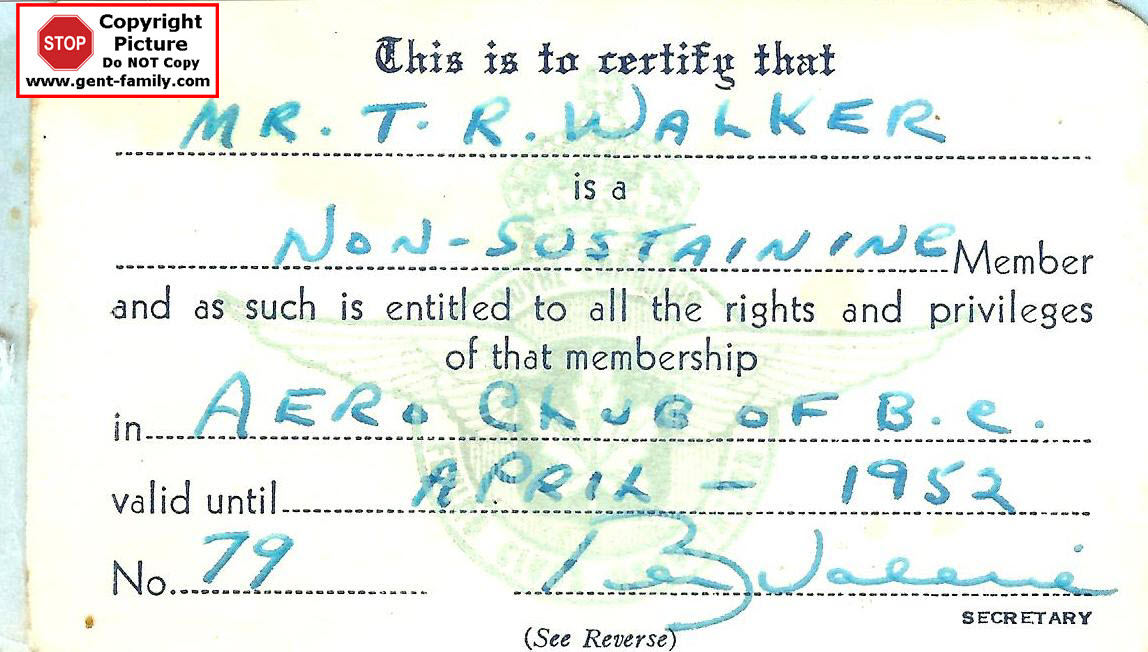 STOP
Copyright
Picture
Do NOT Copy
www.gent-family.com
This is to certify that
MR. T. R. WALKER
is a
NON-SUSTAININE Member
and as such is entitled to all the rights and privileges
of that membership
in AERO CLUB OF B.C.
valid until APRIL - 1952
No. 79
SECRETARY
(See Reverse)